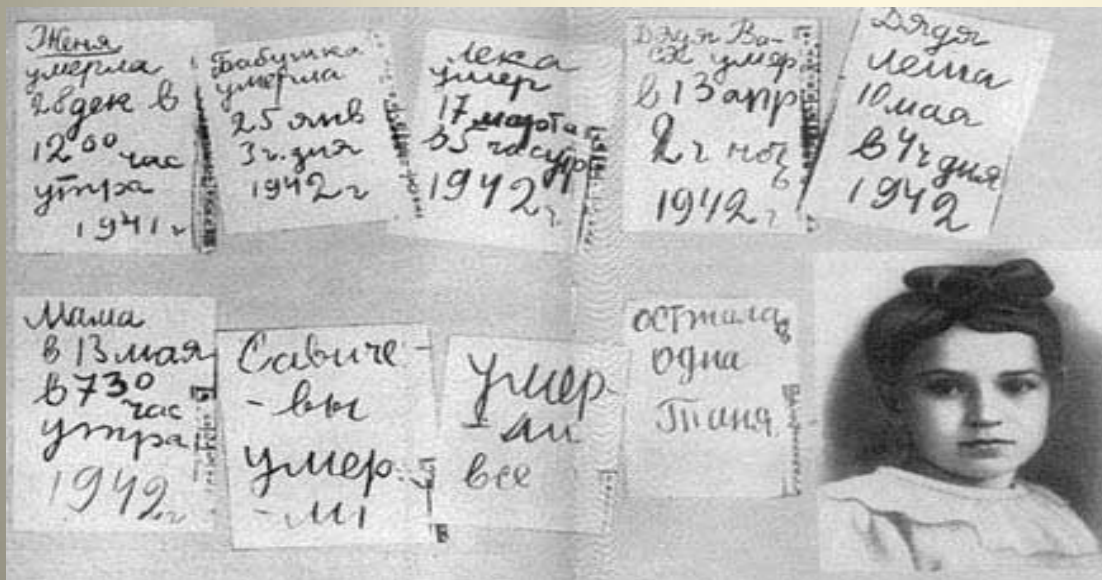 Женя
умерла
28 дек в
12 00 час
утра
1941 г
Бабушка
умерла
25 янв
3 ч. дня
1942 г
Лека
умер
17 марта
в 5 час утр
1942 г
Дядя Ва-
ся умер
в 13 апр
2 ч ночь
1942 г
Дядя
Леша
10 мая
в 4 ч дня
1942
Мама
в 13 мая
в 7 30
час
утра
1942 г
Савиче-
-вы
умер-
-ли
Умер-
-ли
все
Осталась
одна
Таня